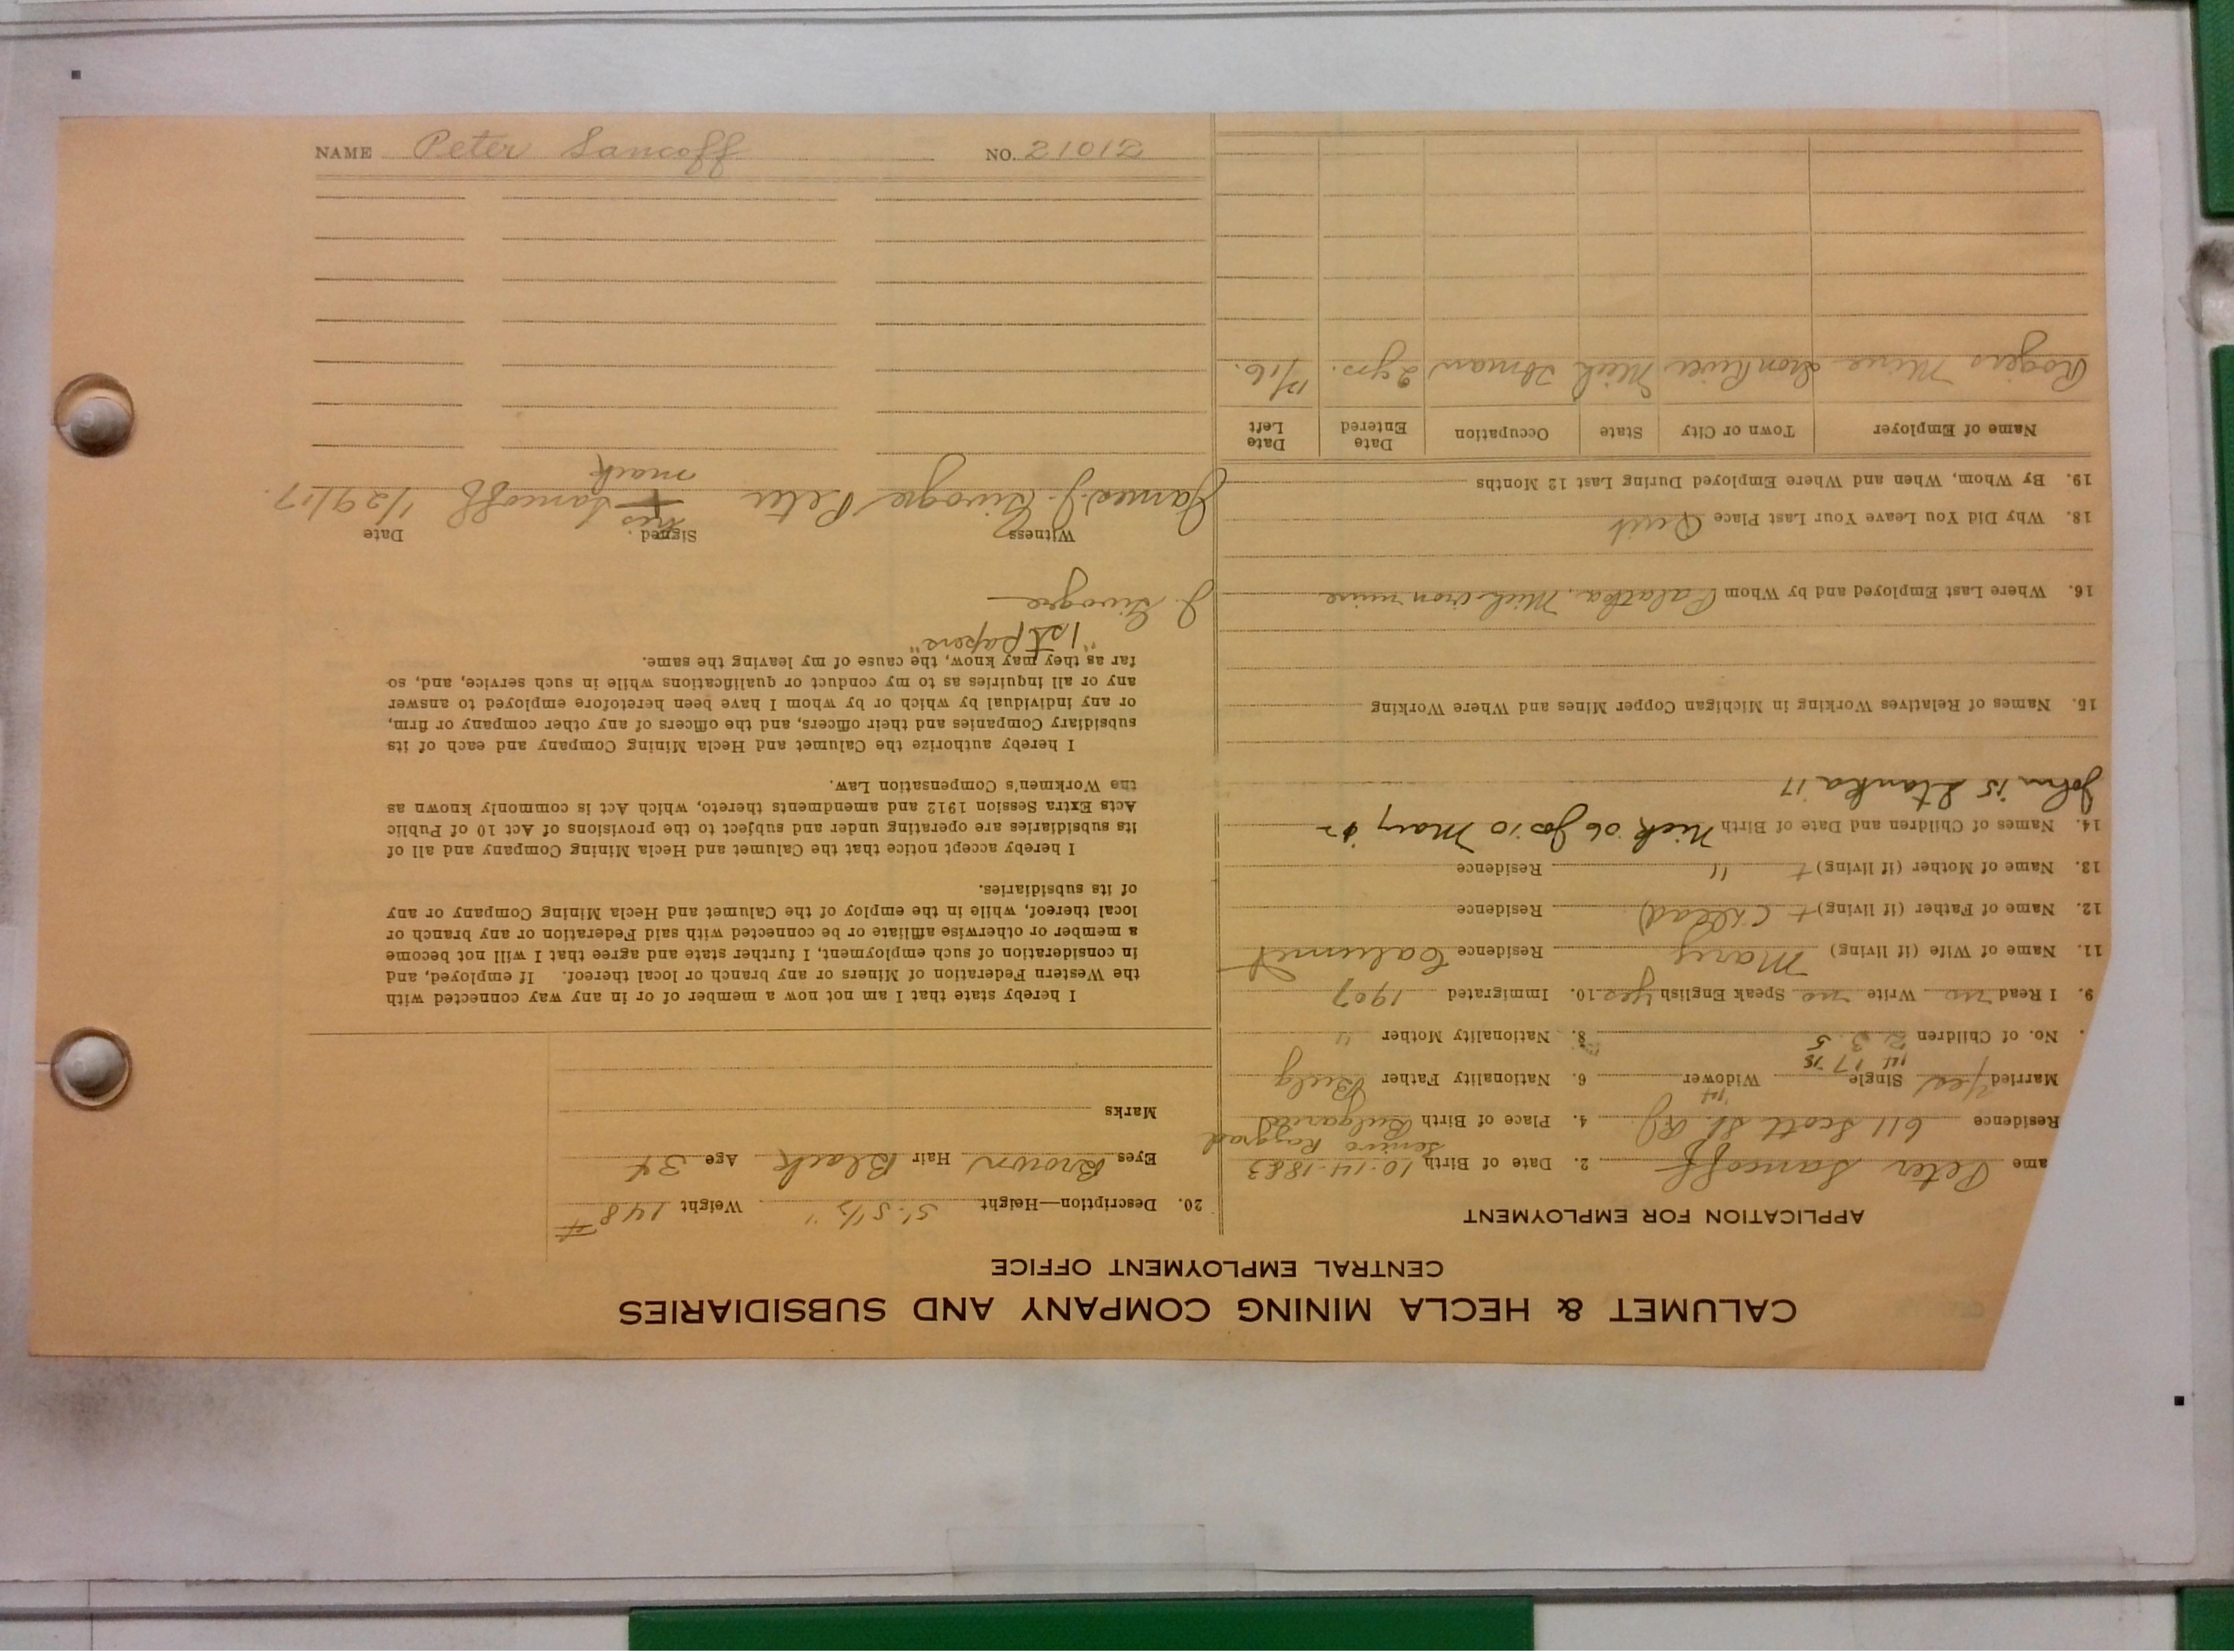 CALUMET & HECLA MINING COMPANY AND SUBSIDIARIES
CENTRAL EMPLOYMENT OFFICE
APPLICATION FOR EMPLOYMENT
ame Peter Sancoff 2. Date of Birth 10-14-1883
Residence 611 Scott St. 4. Place of Birth Bulgaria
Married Yes Single Widower 6. Nationality Father Bulg
. No. of Children 2 3 5 8. Nationality Mother "
9. I Read no Write no Speak English yes 10. Immigrated 1907
11. Name of Wife (if living) Mary Residence Calumet
12. Name of Father (if living) + (Dead) Residence
13. Name of Mother (if living) + " Residence
14. Names of Children and Date of Birth Nick 06 Jos 10 Mary
John 15 Stanka 17
15. Names of Relatives Working in Michigan Copper Mines and Where Working
16. Where Last Employed and by Whom Palatka, Mich iron mine
18. Why Did You Leave Your Last Place Quit
19. By Whom, When and Where Employed During Last 12 Months
Name of Employer Town or City State Occupation Date Entered Date Left
Rogers Mine Iron River Mich 2 yrs. 12/16.
20. Description—Height 5'. 5 1/2" Weight 148 #
Eyes Brown Hair Black Age 34
Marks
I hereby state that I am not now a member of or in any way connected with
the Western Federation of Miners or any branch or local thereof. If employed, and
in consideration of such employment, I further state and agree that I will not become
a member or otherwise affiliate or be connected with said Federation or any branch or
local thereof, while in the employ of the Calumet and Hecla Mining Company or any
of its subsidiaries.
I hereby accept notice that the Calumet and Hecla Mining Company and all of
its subsidiaries are operating under and subject to the provisions of Act 10 of Public
Acts Extra Session 1912 and amendments thereto, which Act is commonly known as
the Workmen's Compensation Law.
I hereby authorize the Calumet and Hecla Mining Company and each of its
subsidiary Companies and their officers, and the officers of any other company or firm,
or any individual by which or by whom I have been heretofore employed to answer
any or all inquiries as to my conduct or qualifications while in such service, and, so
far as they may know, the cause of my leaving the same.
"1st papers"
Witness Signed. Date
his
James J. Peter + Sancoff 1/29/17.
mark
NAME Peter Sancoff NO. 21012